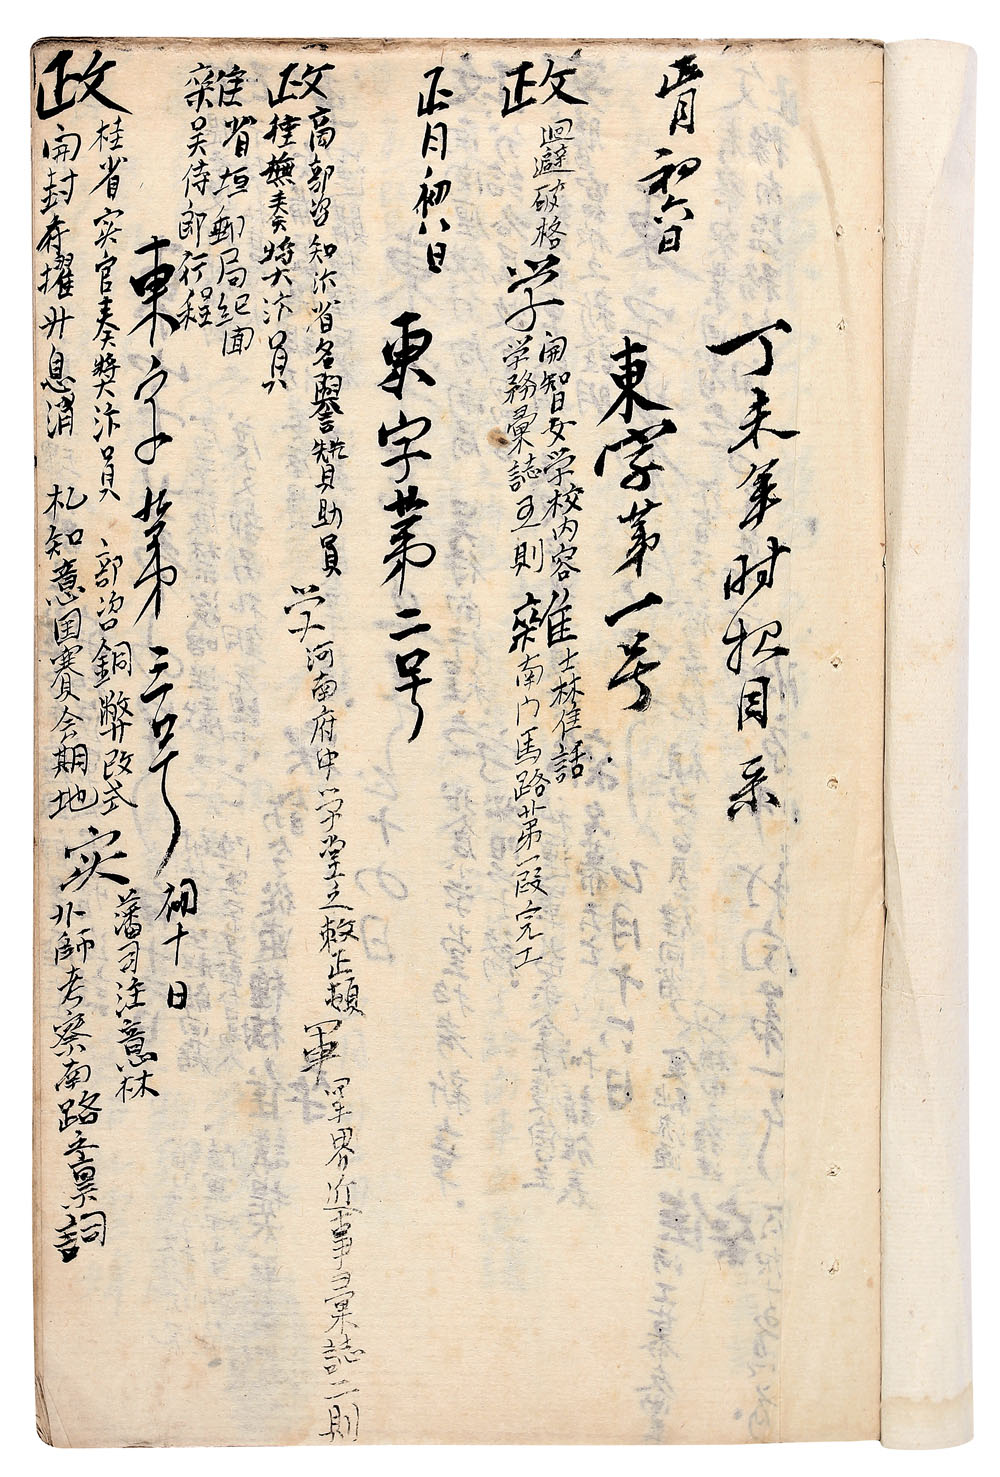 丁未年时报目录
正月初六日
東字第一号
政
迴避破格
学
開智女学校内容
学務彙誌五則
雜
士林佳話
南門馬路第一段完工
正月初八日
東字第二号
政
商部咨知汴省名譽贊助員
桂撫奏奖汴員
学
河南府中学堂之敕正頓
軍
軍界近事彙誌二則
雜
省垣郵局紀聞
吴侍郎行程
東字第三号
初十日
政
桂省实官奏獎汴員
部咨銅幣改式
開封府擢升息消
札知意国賽会期地
实
藩司注意林
外師考察南路